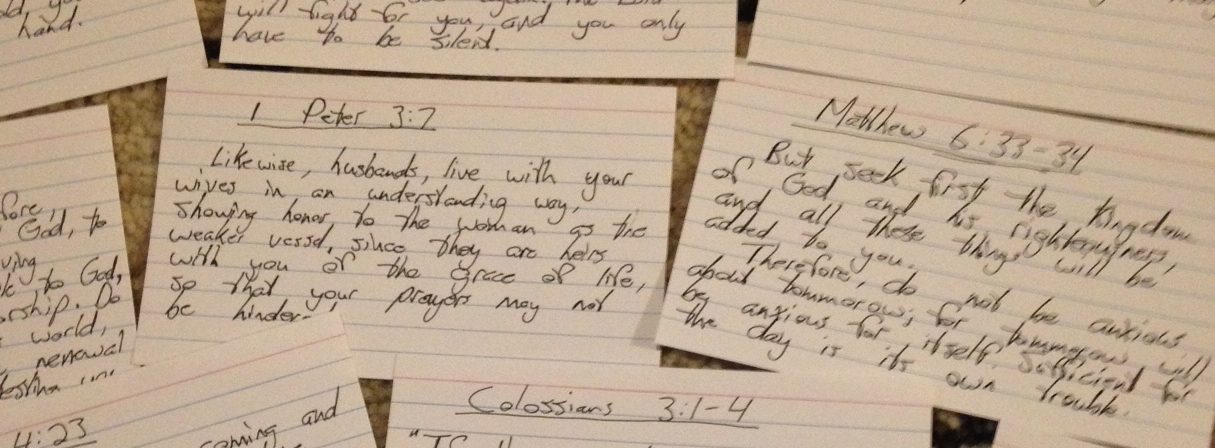 hand.
will fight for you, and you only
have to be silent.
1 Peter 3:7
Likewise, husbands, live with your
wives in an understanding way,
showing honor to the woman as the
weaker vessel, since they are heirs
with you of the grace of life,
so that your prayers may not
be hinder-
Matthew 6:33-34
But seek first the kingdom
of God and his righteousness,
and all these things will be
added to you.
Therefore, do not be anxious
about tommorow, for tommorow will
be anxious for itself. Sufficient for
the day is its own trouble.
fore,
God, to
ving
to God,
orship. Do
world,
renewal
4:23
coming and
Colossians 3:1-4